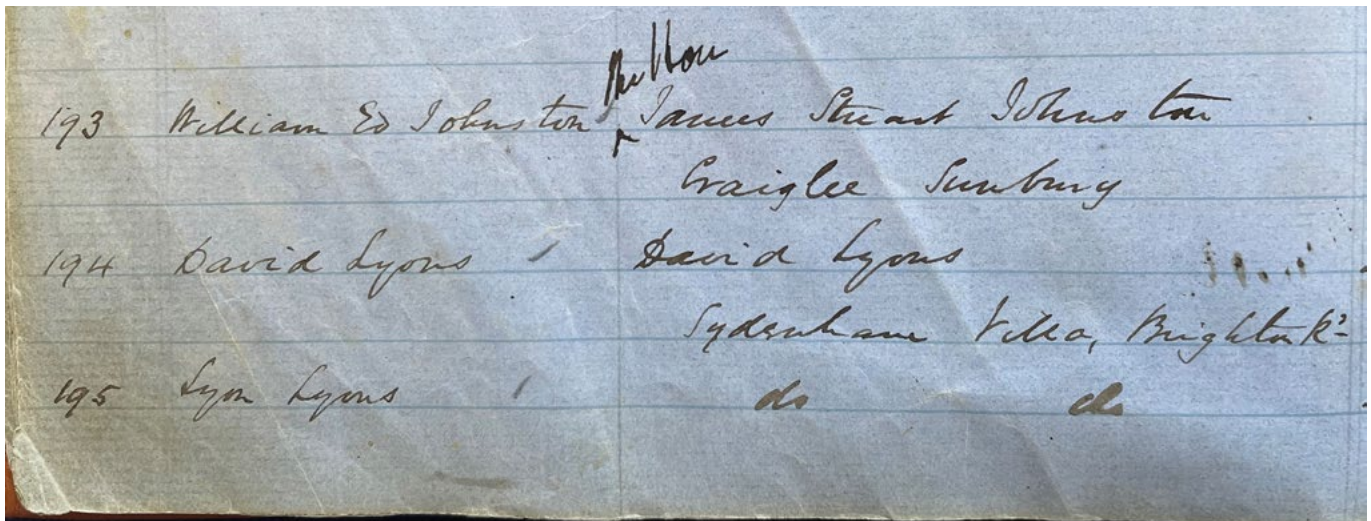 The Hon
193 William Ed Johnston ‸ James Stuart Johnston
Craiglee Sunbury
194 David Lyons ' David Lyons
Sydenham Villa, Brighton Rd
195 Lyon Lyons ' do do